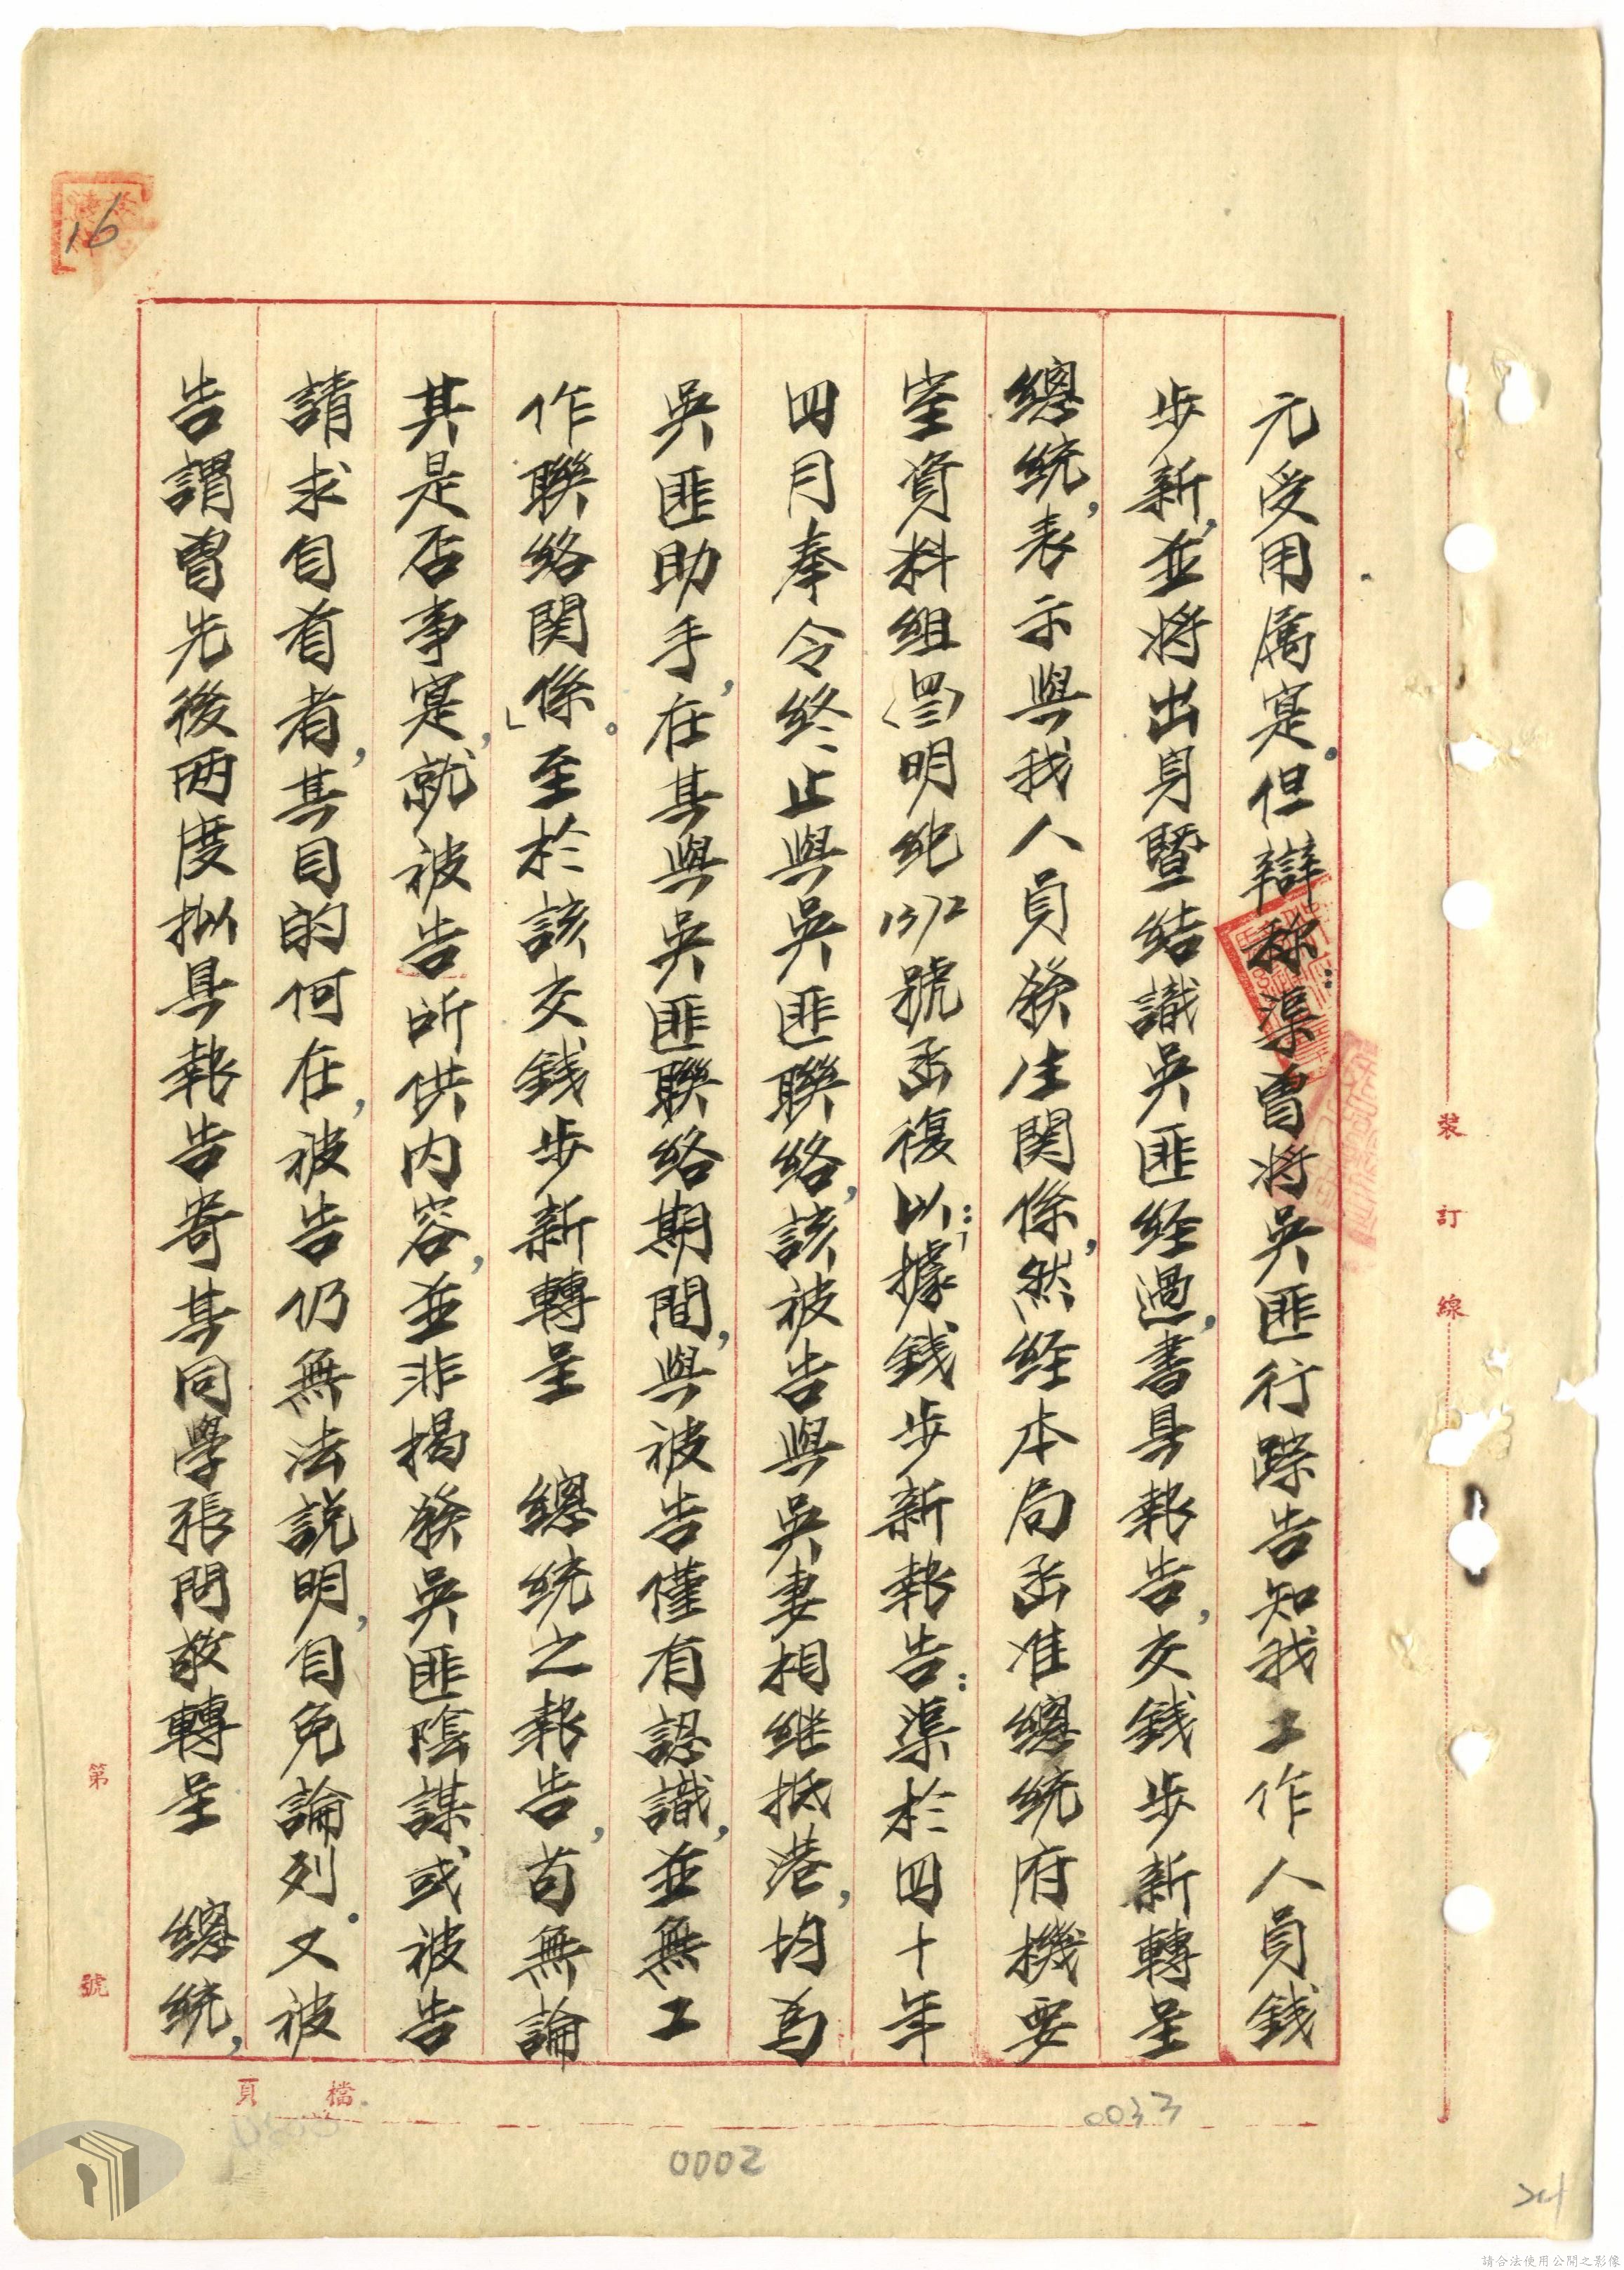 元受用属寔。但辯称：渠曾將吳匪行踪告知我工作人員錢
步新，並將出身暨結識吳匪経過，書具報告，交錢步新轉呈
總統，表示與我人員發生関係，然経本局函准總統府機要
室資料組(四三)明纪1372號函復以：「據錢步新報告：渠於四十年
四月奉令終止與吳匪聯絡，該被告與吳妻相继抵港，均為
吳匪助手，在其與吳匪聯絡期間，與被告僅有認識，並無工
作聯絡関係。」至於該交錢步新轉呈　總統之報告，苟無論
其是否事寔，就被告所供内容，並非揭發吳匪陰謀或被告
請求自首者，其目的何在，被告仍無法説明，自免論列。又被
告謂曾先後两度拟具報告寄其同學張問敬轉呈　總統，
裝
訂
線
第
號
檔
頁
16
0033
0002
請合法使用公開之影像